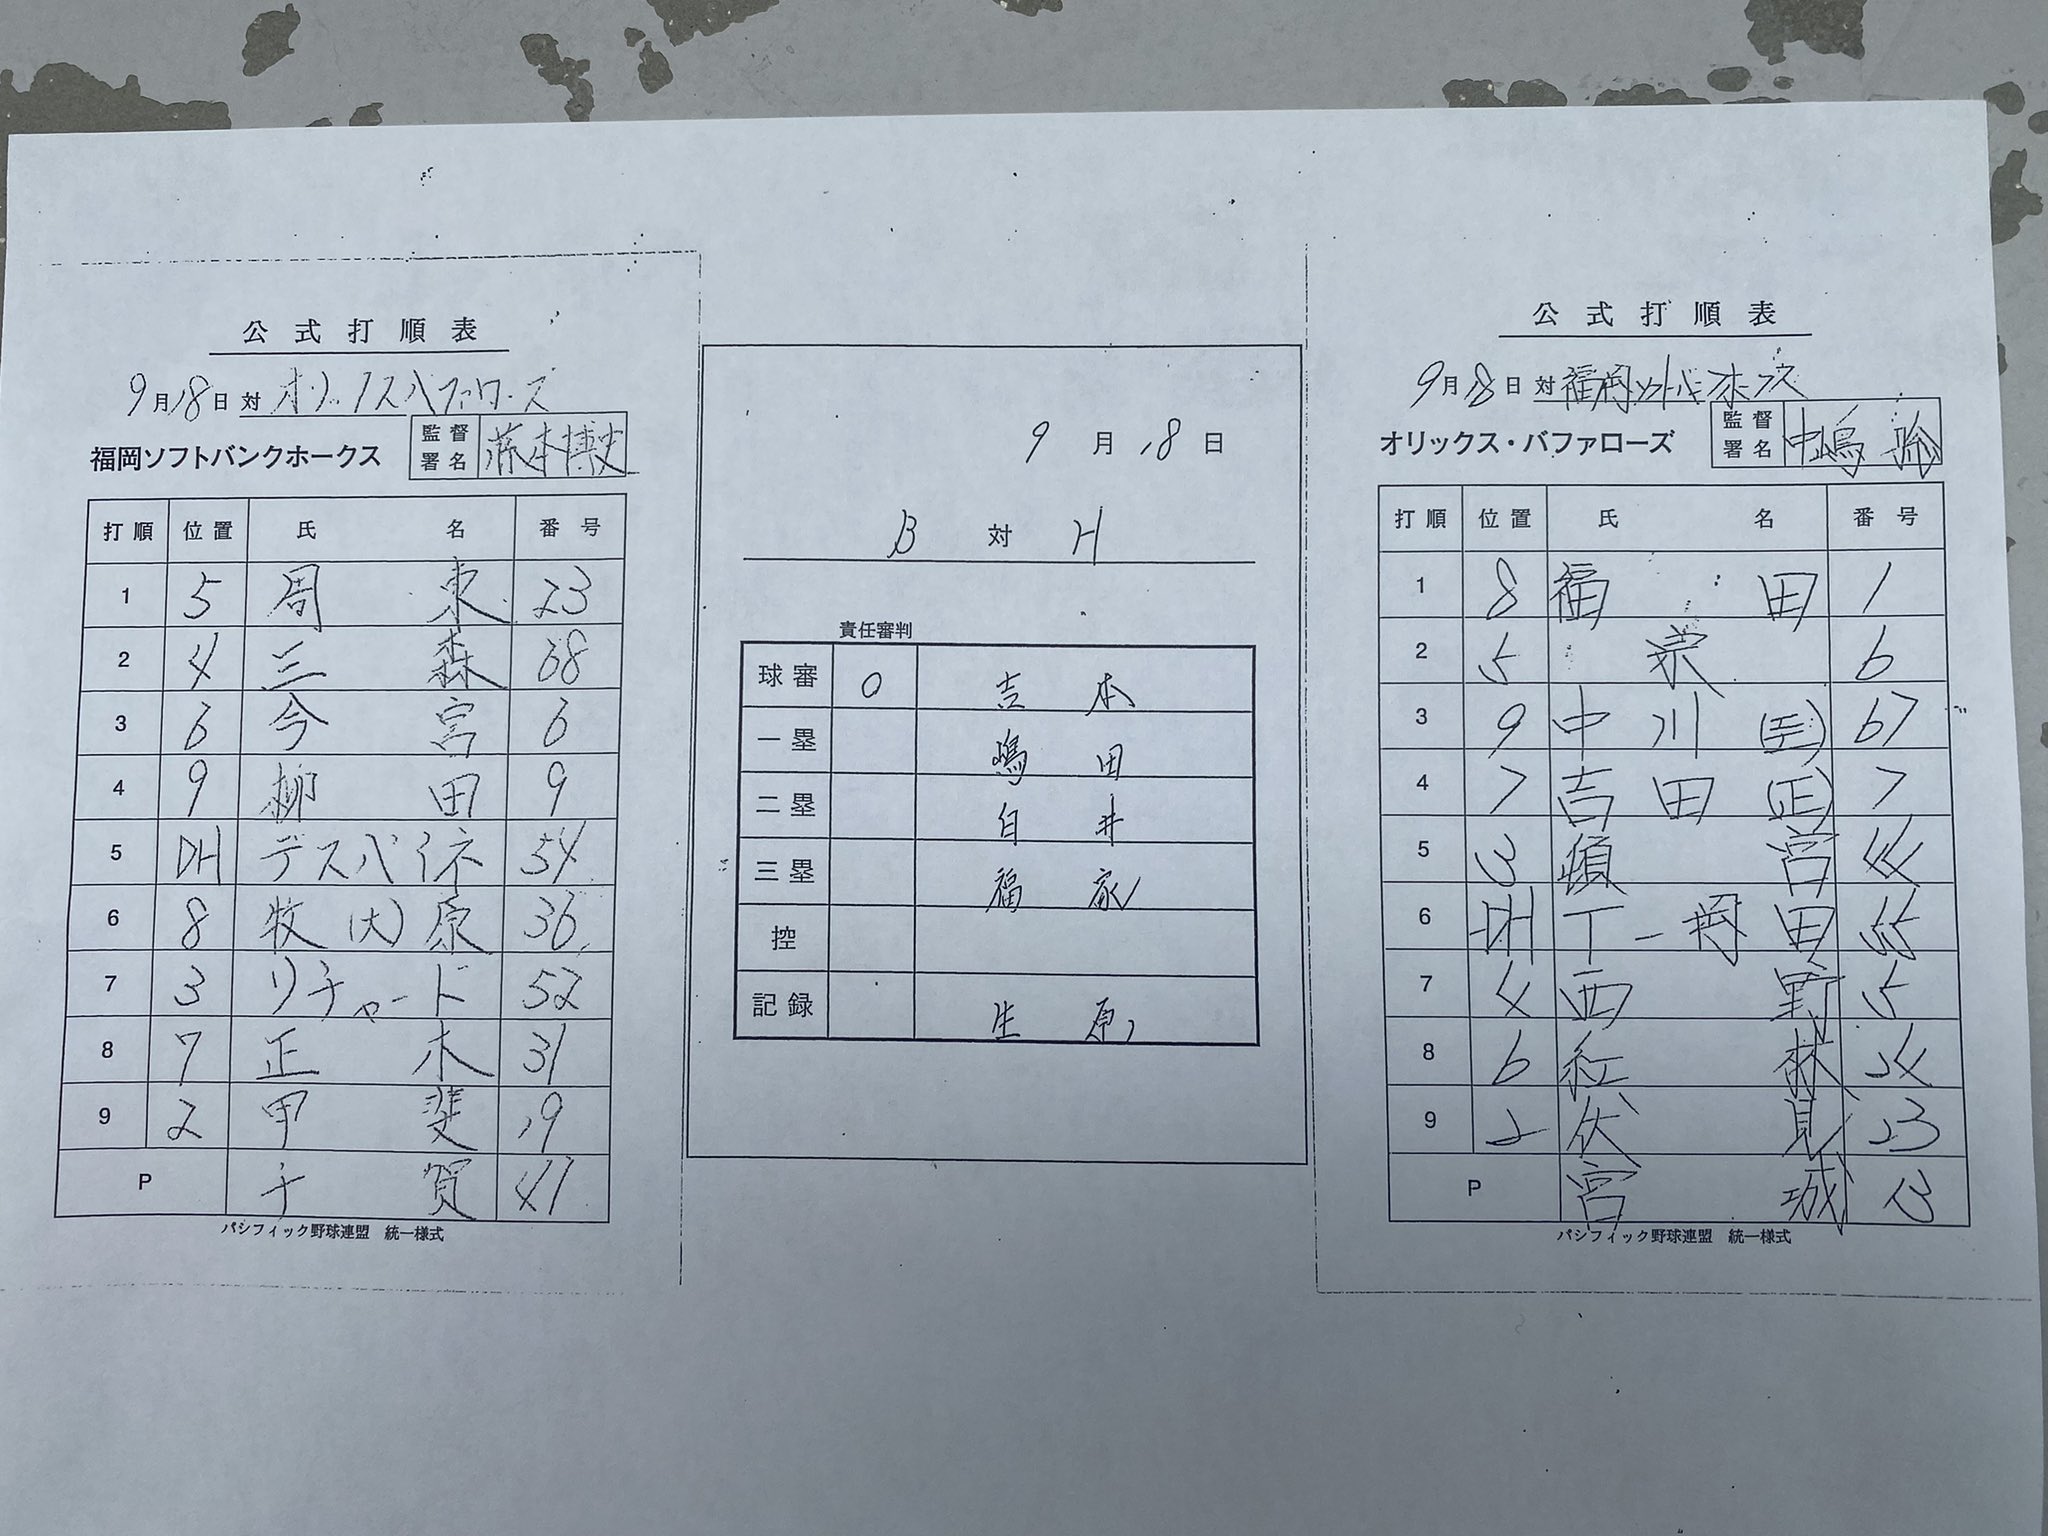 公式打順表
9月18日 対 オリックスバファローズ
福岡ソフトバンクホークス
監督署名 藤本博史
打順 位置 氏名 番号
1 5 周東 23
2 4 三森 68
3 6 今宮 6
4 9 柳田 9
5 DH デスパイネ 54
6 8 牧(大)原 36
7 3 リチャード 52
8 7 正木 31
9 2 甲斐 19
P 千賀 41
パシフィック野球連盟 統一様式
9月18日
B 対 H
責任審判
球審 O 吉本
一塁 嶋田
二塁 白井
三塁 福家
控
記録 生原
公式打順表
9月18日 対 福岡ソフトバンクホークス
オリックス・バファローズ
監督署名 中嶋聡
打順 位置 氏名 番号
1 8 福田 1
2 5 宗 6
3 9 中川(圭) 67
4 7 吉田(正) 7
5 3 頓宮 44
6 DH T-岡田 55
7 4 西野 5
8 6 紅林 24
9 2 伏見 23
P 宮城 13
パシフィック野球連盟 統一様式